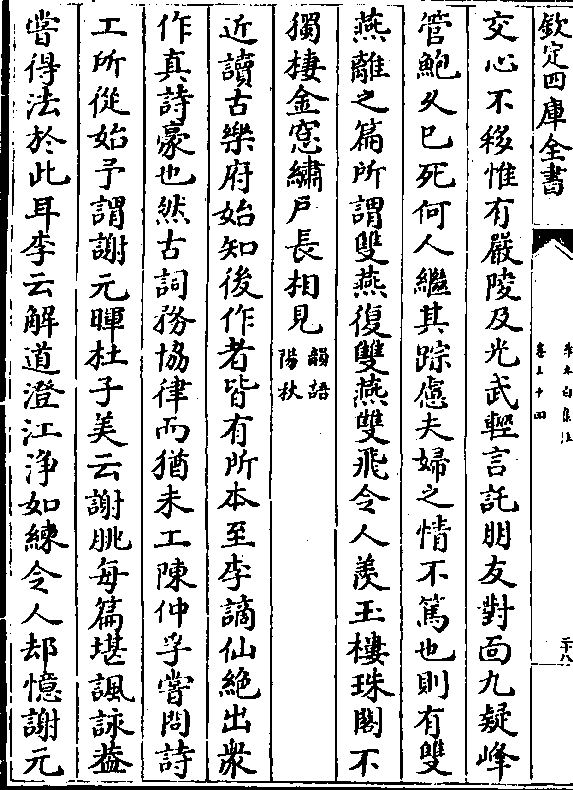 欽定四庫全書
李太白集注
卷三十四
二十八
交心不移惟有嚴陵及光武輕言託朋友對面九疑峰
管鮑久已死何人繼其踪慮夫婦之情不篤也則有雙
燕離之篇所謂雙燕復雙燕雙飛令人羨玉樓珠閣不
獨棲金窓繡戶長相見韻語陽秋
近讀古樂府始知後作者皆有所本至李謫仙絶出衆
作真詩豪也然古詞務協律而猶未工陳仲孚嘗問詩
工所從始予謂謝元暉杜子美云謝朓每篇堪諷詠葢
嘗得法於此耳李云解道澄江浄如練令人却憶謝元